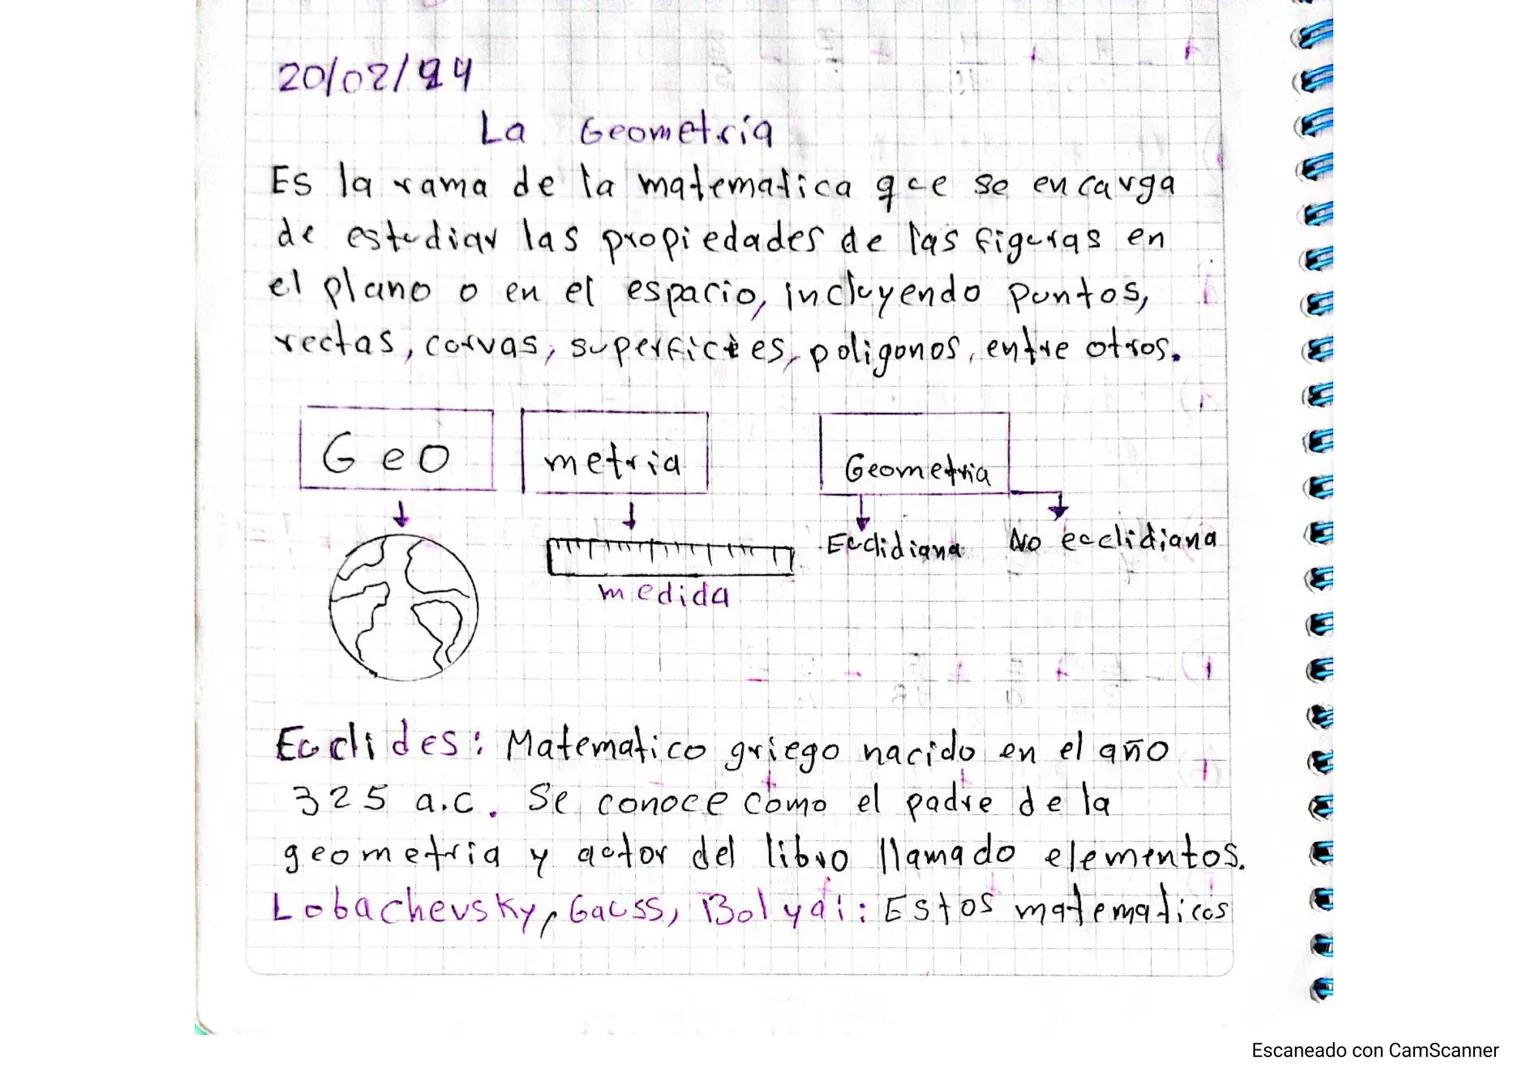 20/02/24
La Geometría
Es la rama de la matematica que se encarga
de estudiar las propiedades de las figuras en
el plano o en el espacio, incluyendo puntos,
rectas, curvas, superficies, poligonos, entre otros.
Geo metria Geometria
Euclidiana No euclidiana
medida
Euclides: Matematico griego nacido en el año
325 a.c. Se conoce como el padre de la
geometria y autor del libro llamado elementos.
Lobachevsky, Gauss, Bolyai: Estos matematicos
Escaneado con CamScanner